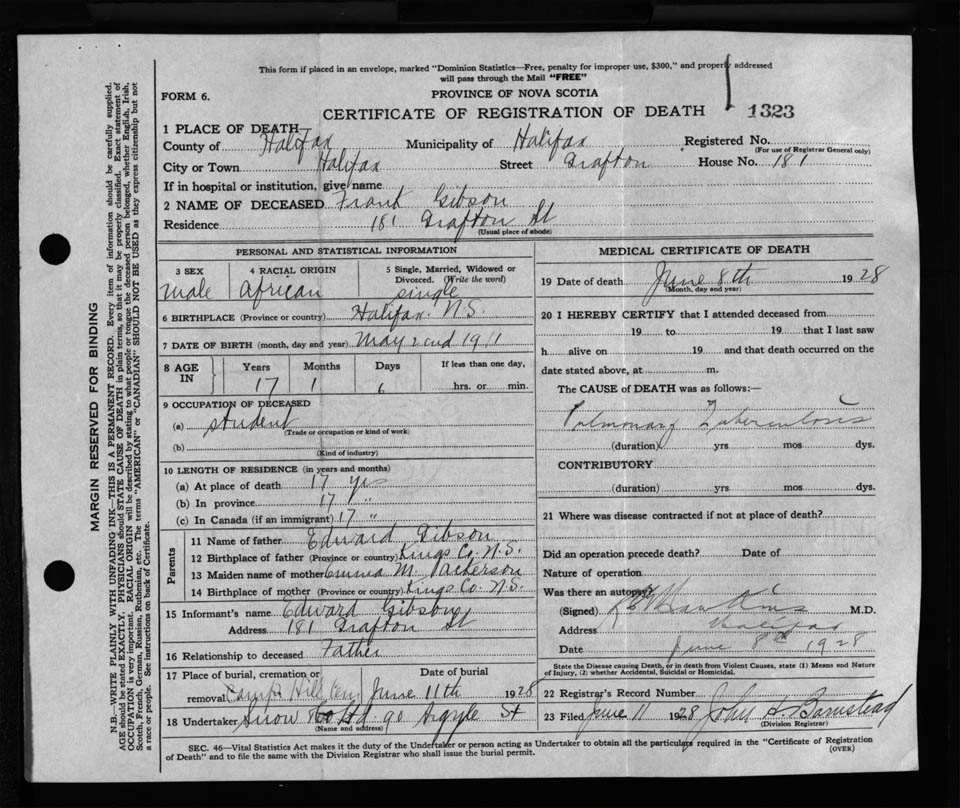 This form if placed in an envelope, marked "Dominion Statistics—Free, penalty for improper use, $300," and properly addressed
will pass through the Mail "FREE"
FORM 6.
PROVINCE OF NOVA SCOTIA
CERTIFICATE OF REGISTRATION OF DEATH 1323
1 PLACE OF DEATH
County of Halifax Municipality of Halifax Registered No.
(For use of Registrar General only)
City or Town Halifax Street Grafton House No. 181
If in hospital or institution, give name
2 NAME OF DECEASED Frank Gibson
Residence 181 Grafton St
(Usual place of abode)
PERSONAL AND STATISTICAL INFORMATION
3 SEX 4 RACIAL ORIGIN 5 Single, Married, Widowed or
Divorced. (Write the word)
male African single
6 BIRTHPLACE (Province or country) Halifax. N.S.
7 DATE OF BIRTH (month, day and year) May 2nd 1911
8 AGE IN Years Months Days If less than one day,
17 1 6 hrs. or min.
9 OCCUPATION OF DECEASED
(a) student
(Trade or occupation or kind of work)
(b)
(Kind of industry)
10 LENGTH OF RESIDENCE (in years and months)
(a) At place of death 17 yrs
(b) In province 17 "
(c) In Canada (if an immigrant) 17 "
Parents
11 Name of father Edward Gibson
12 Birthplace of father (Province or country) Kings Co. N.S.
13 Maiden name of mother Emma M.
14 Birthplace of mother (Province or country) Kings Co. N.S.
15 Informant's name Edward Gibson
Address 181 Grafton St
16 Relationship to deceased Father
17 Place of burial, cremation or Date of burial
removal Camp Hill Cem. June 11th 1928
18 Undertaker Snow & Co Ltd. 90 Argyle St
(Name and address)
MEDICAL CERTIFICATE OF DEATH
19 Date of death June 8th 1928
(Month, day and year)
20 I HEREBY CERTIFY that I attended deceased from
19 to 19 that I last saw
h alive on 19 and that death occurred on the
date stated above, at m.
The CAUSE of DEATH was as follows:—
Pulmonary Tuberculosis
(duration) yrs mos dys.
CONTRIBUTORY
(duration) yrs mos dys.
21 Where was disease contracted if not at place of death?
Did an operation precede death? Date of
Nature of operation
Was there an autopsy?
(Signed) Hawkins M.D.
Address Halifax
Date June 8th 1928
State the Disease causing Death, or in death from Violent Causes, state (1) Means and Nature
of Injury, (2) whether Accidental, Suicidal or Homicidal.
22 Registrar's Record Number
23 Filed June 11 1928 John A Barnstead
(Division Registrar)
SEC. 46—Vital Statistics Act makes it the duty of the Undertaker or person acting as Undertaker to obtain all the particulars required in the "Certificate of Registration
of Death" and to file the same with the Division Registrar who shall issue the burial permit.
(OVER)
MARGIN RESERVED FOR BINDING
N.B.—WRITE PLAINLY WITH UNFADING INK—THIS IS A PERMANENT RECORD. Every item of information should be carefully supplied.
AGE should be stated EXACTLY. PHYSICIANS should STATE CAUSE OF DEATH in plain terms, so that it may be properly classified. Exact statement of
OCCUPATION is very important. RACIAL ORIGIN will be described by stating to what people or tongue the deceased person belonged, whether English, Irish,
Scotch, French, German, Russian, Ruthenian, etc. The terms "AMERICAN" or "CANADIAN" SHOULD NOT BE USED as they express citizenship but not
a race or people. See instructions on back of Certificate.